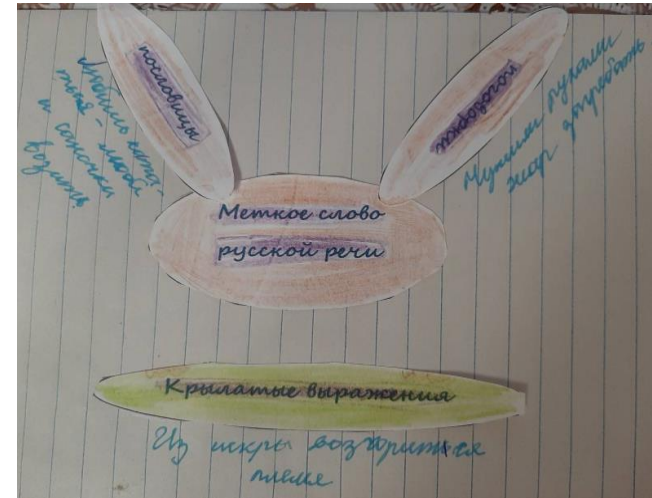 пословицы
Любишь ката-
ться - люби
и саночки
возить
поговорки
Чужими руками
жар загребать
Меткое слово
русской речи
Крылатые выражения
Из искры возгорится
племя